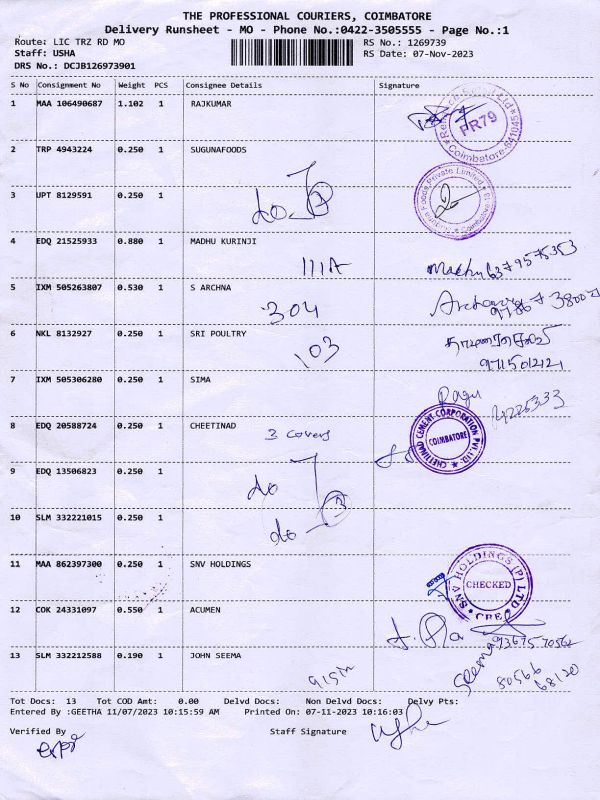 THE PROFESSIONAL COURIERS, COIMBATORE
Delivery Runsheet - MO - Phone No.:0422-3505555 - Page No.:1
Route: LIC TRZ RD MO RS No.: 1269739
Staff: USHA RS Date: 07-Nov-2023
DRS No.: DCJB126973901
S No Consignment No Weight PCS Consignee Details Signature
1 MAA 106490687 1.102 1 RAJKUMAR
PR79
Coimbatore-641045
2 TRP 4943224 0.250 1 SUGUNAFOODS
3 UPT 8129591 0.250 1 do
Suguna Foods Private Limited Coimbatore
4 EDQ 21525933 0.880 1 MADHU KURINJI
111A Madhu 6379575353
5 IXM 505263807 0.530 1 S ARCHNA
304 Archana
6 NKL 8132927 0.250 1 SRI POULTRY
103
7 IXM 505306280 0.250 1 SIMA
Ragu
8 EDQ 20588724 0.250 1 CHEETINAD
3 covers
CHETTINAD CEMENT CORPORATION PVT. LTD.
COIMBATORE
9 EDQ 13506823 0.250 1
do
10 SLM 332221015 0.250 1
do 3
11 MAA 862397300 0.250 1 SNV HOLDINGS
SNV HOLDINGS (P) LTD
CHECKED
CBE
12 COK 24331097 0.550 1 ACUMEN
13 SLM 332212588 0.190 1 JOHN SEEMA
Seema 80566
68120
Tot Docs: 13 Tot COD Amt: 0.00 Delvd Docs: Non Delvd Docs: Delvy Pts:
Entered By :GEETHA 11/07/2023 10:15:59 AM Printed On: 07-11-2023 10:16:03
Verified By Staff Signature